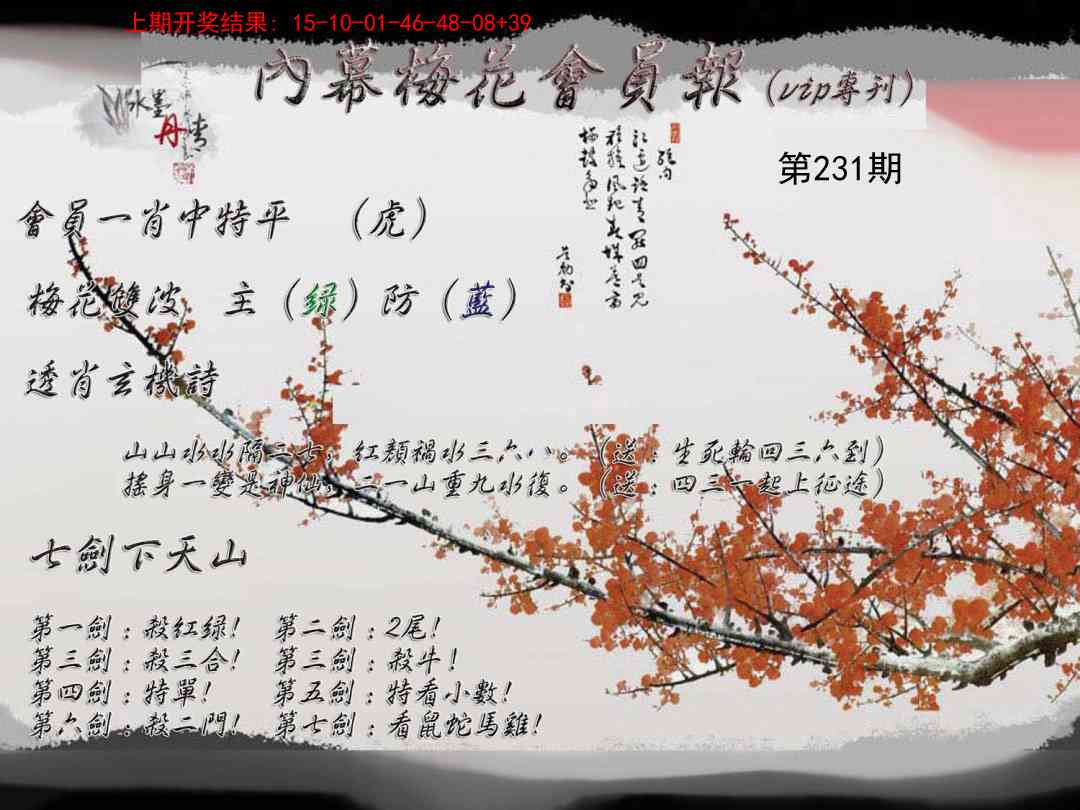 上期开奖结果: 15-10-01-46-48-08+39
內幕梅花會員報(vip專刊)
水墨
丹青
第231期
會員一肖中特平 (虎)
梅花雙波 主(绿)防(藍)
透肖玄機詩
山山水水隔二七，紅顏禍水三六八。(送:生死輪回三六到)
搖身一變是神仙，二一山重九水復。(送:四三一起上征途)
七劍下天山
第一劍:殺紅绿! 第二劍:2尾!
第三劍:殺三合! 第三劍:殺牛!
第四劍:特單! 第五劍:特看小數!
第六劍:殺二門! 第七劍:看鼠蛇馬雞!